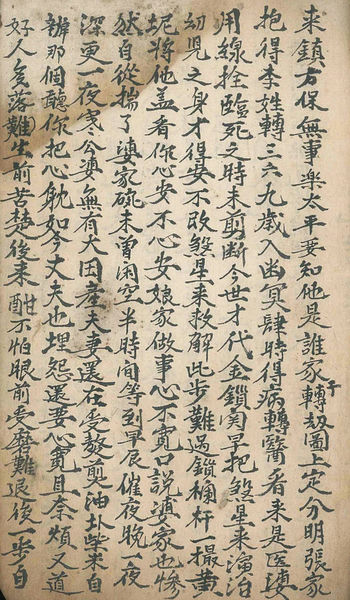 来鎮方保無事楽太平要知他是誰家轉劫圖上定分明張家子
抱得李姓轉三六九歲入幽冥肆時得病轉醫看来是医婆
用線拴臨死之時未剪断今世才代金鎖関早把煞星来淪治
幼児之身才得安不敢煞星来救解此步難過鎖桶杆一撮黄
坭将他盖看你心安不心安娘家做事心不寛口說婆家也慘
然自從揣了婆家碗未曾闲空半時間等到早辰催夜晚一夜
深更一夜寒公婆無有大田產夫妻還在受熬煎油盐柴米自
辦那個聽你把心躭如今丈夫也埋怨還要心寛且奈煩又道
好人多落難生前苦楚後来酣不怕眼前受磨難退後一步自